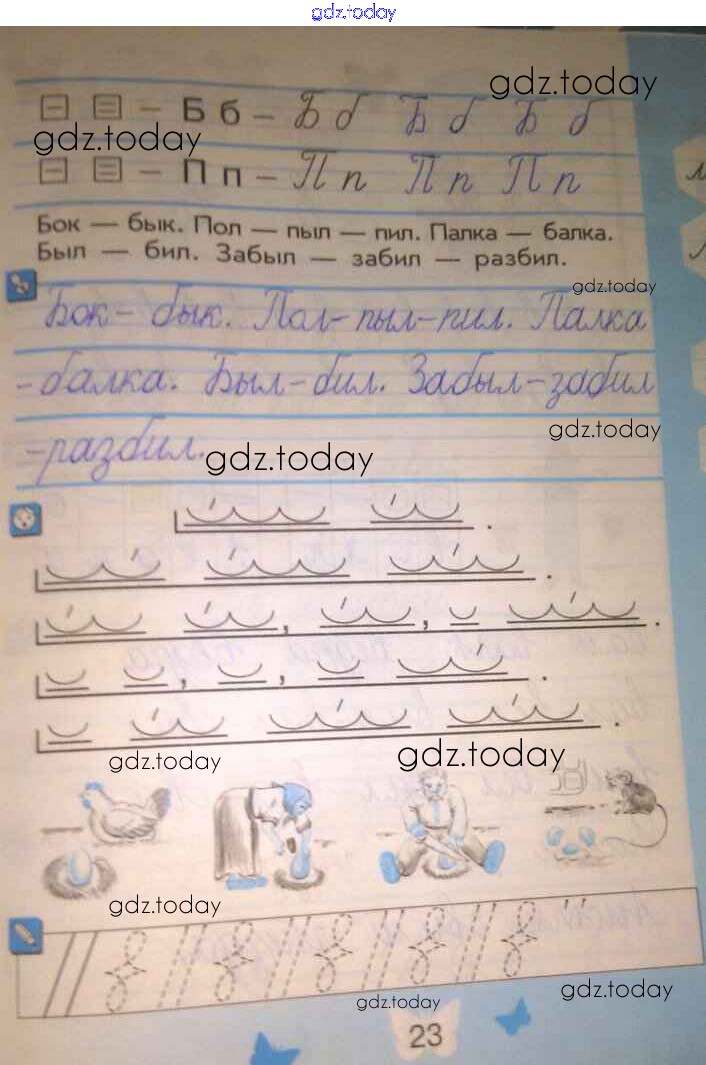 gdz.today
gdz.today
– Б б – Б б Б б Б б
gdz.today
– П п – П п П п П п
Бок — бык. Пол — пыл — пил. Палка — балка.
Был — бил. Забыл — забил — разбил.
gdz.today
Бок – бык. Пол – пыл – пил. Палка
– балка. Был – бил. Забыл – забил
gdz.today
– разбил.
gdz.today
gdz.today
gdz.today
gdz.today
gdz.today
gdz.today
23